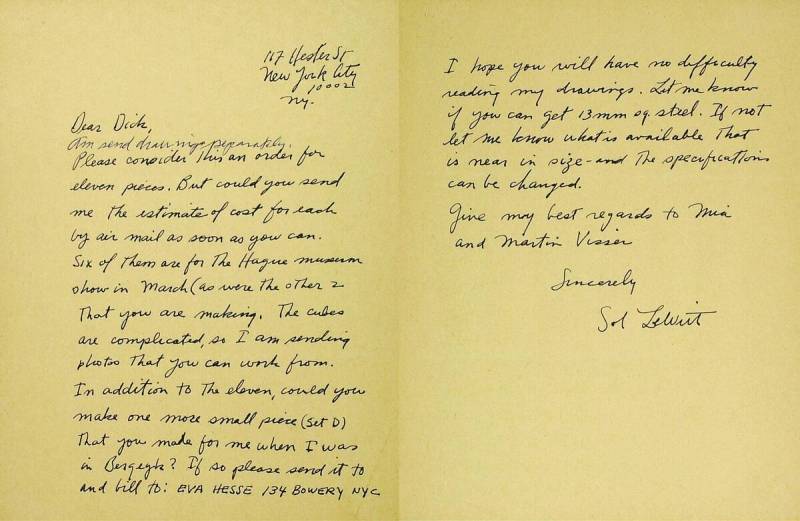 117 Hester St
New York City
10002
N.Y.
Dear Dick,
Am send drawings separately.
Please consider this an order for
eleven pieces. But could you send
me the estimate of cost for each
by air mail as soon as you can.
Six of them are for the Hague museum
show in March (as were the other 2
that you are making. The cubes
are complicated, so I am sending
photos that you can work from.
In addition to the eleven, could you
make one more small piece (Set D)
that you made for me when I was
in Bergeyk? If so please send it to
and bill to: EVA HESSE 134 BOWERY NYC
I hope you will have no difficulty
reading my drawings. Let me know
if you can get 13mm sq. steel. If not
let me know what is available that
is near in size - and the specifications
can be changed.
Give my best regards to Mia
and Martin Visser
Sincerely
Sol LeWitt